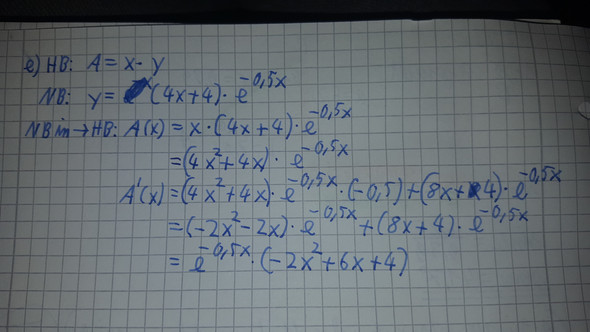 e) HB: A = x · y
NB: y = (4x+4) · e^-0,5x
NB in → HB: A(x) = x · (4x+4) · e^-0,5x
= (4x²+4x) · e^-0,5x
A'(x) = (4x²+4x) · e^-0,5x · (-0,5) + (8x+4) · e^-0,5x
= (-2x²-2x) · e^-0,5x + (8x+4) · e^-0,5x
= e^-0,5x · (-2x²+6x+4)